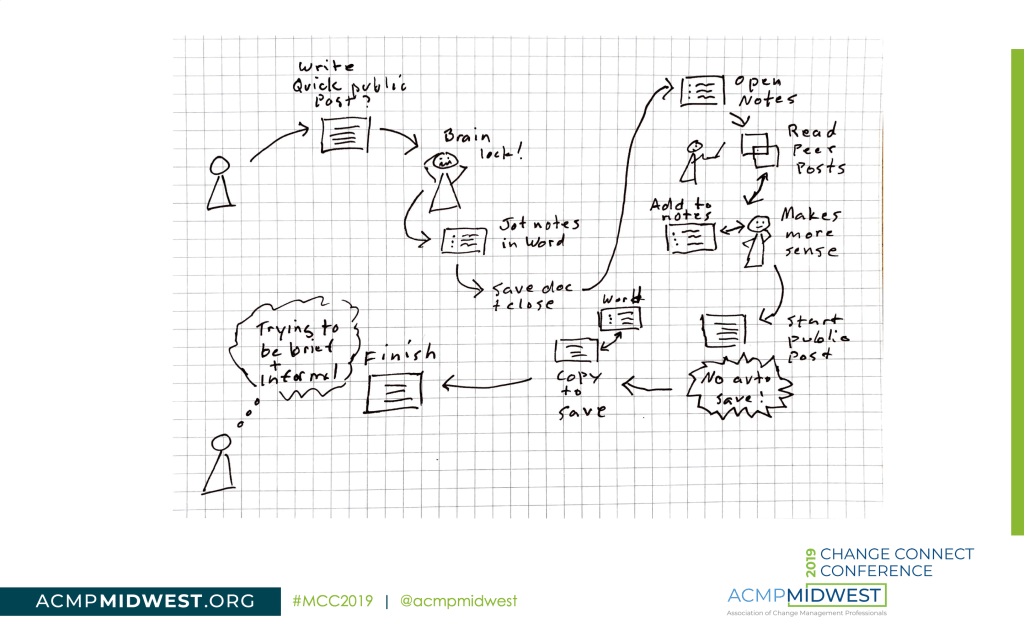 Write
Quick public
Post?
Brain
lock!
Jot notes
in Word
Save doc
+ close
Open
Notes
Read
Peer
Posts
Add to
notes
Makes
more
sense
Start
public
Post
No auto
save!
Word
Copy
to
save
Finish
Trying to
be brief
+
informal
2019
CHANGE CONNECT
CONFERENCE
ACMPMIDWEST
Association of Change Management Professionals
ACMPMIDWEST.ORG
#MCC2019 | @acmpmidwest